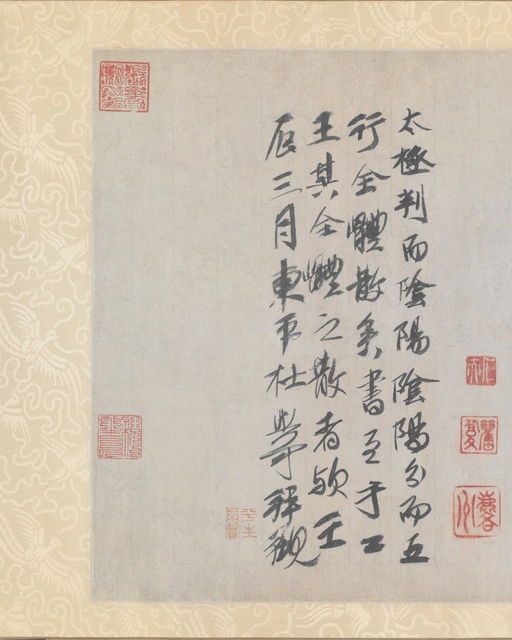 太極判而陰陽陰陽分而五
行全體散矣書至于二
王其全體之散者歟壬
辰三月東平杜拜觀